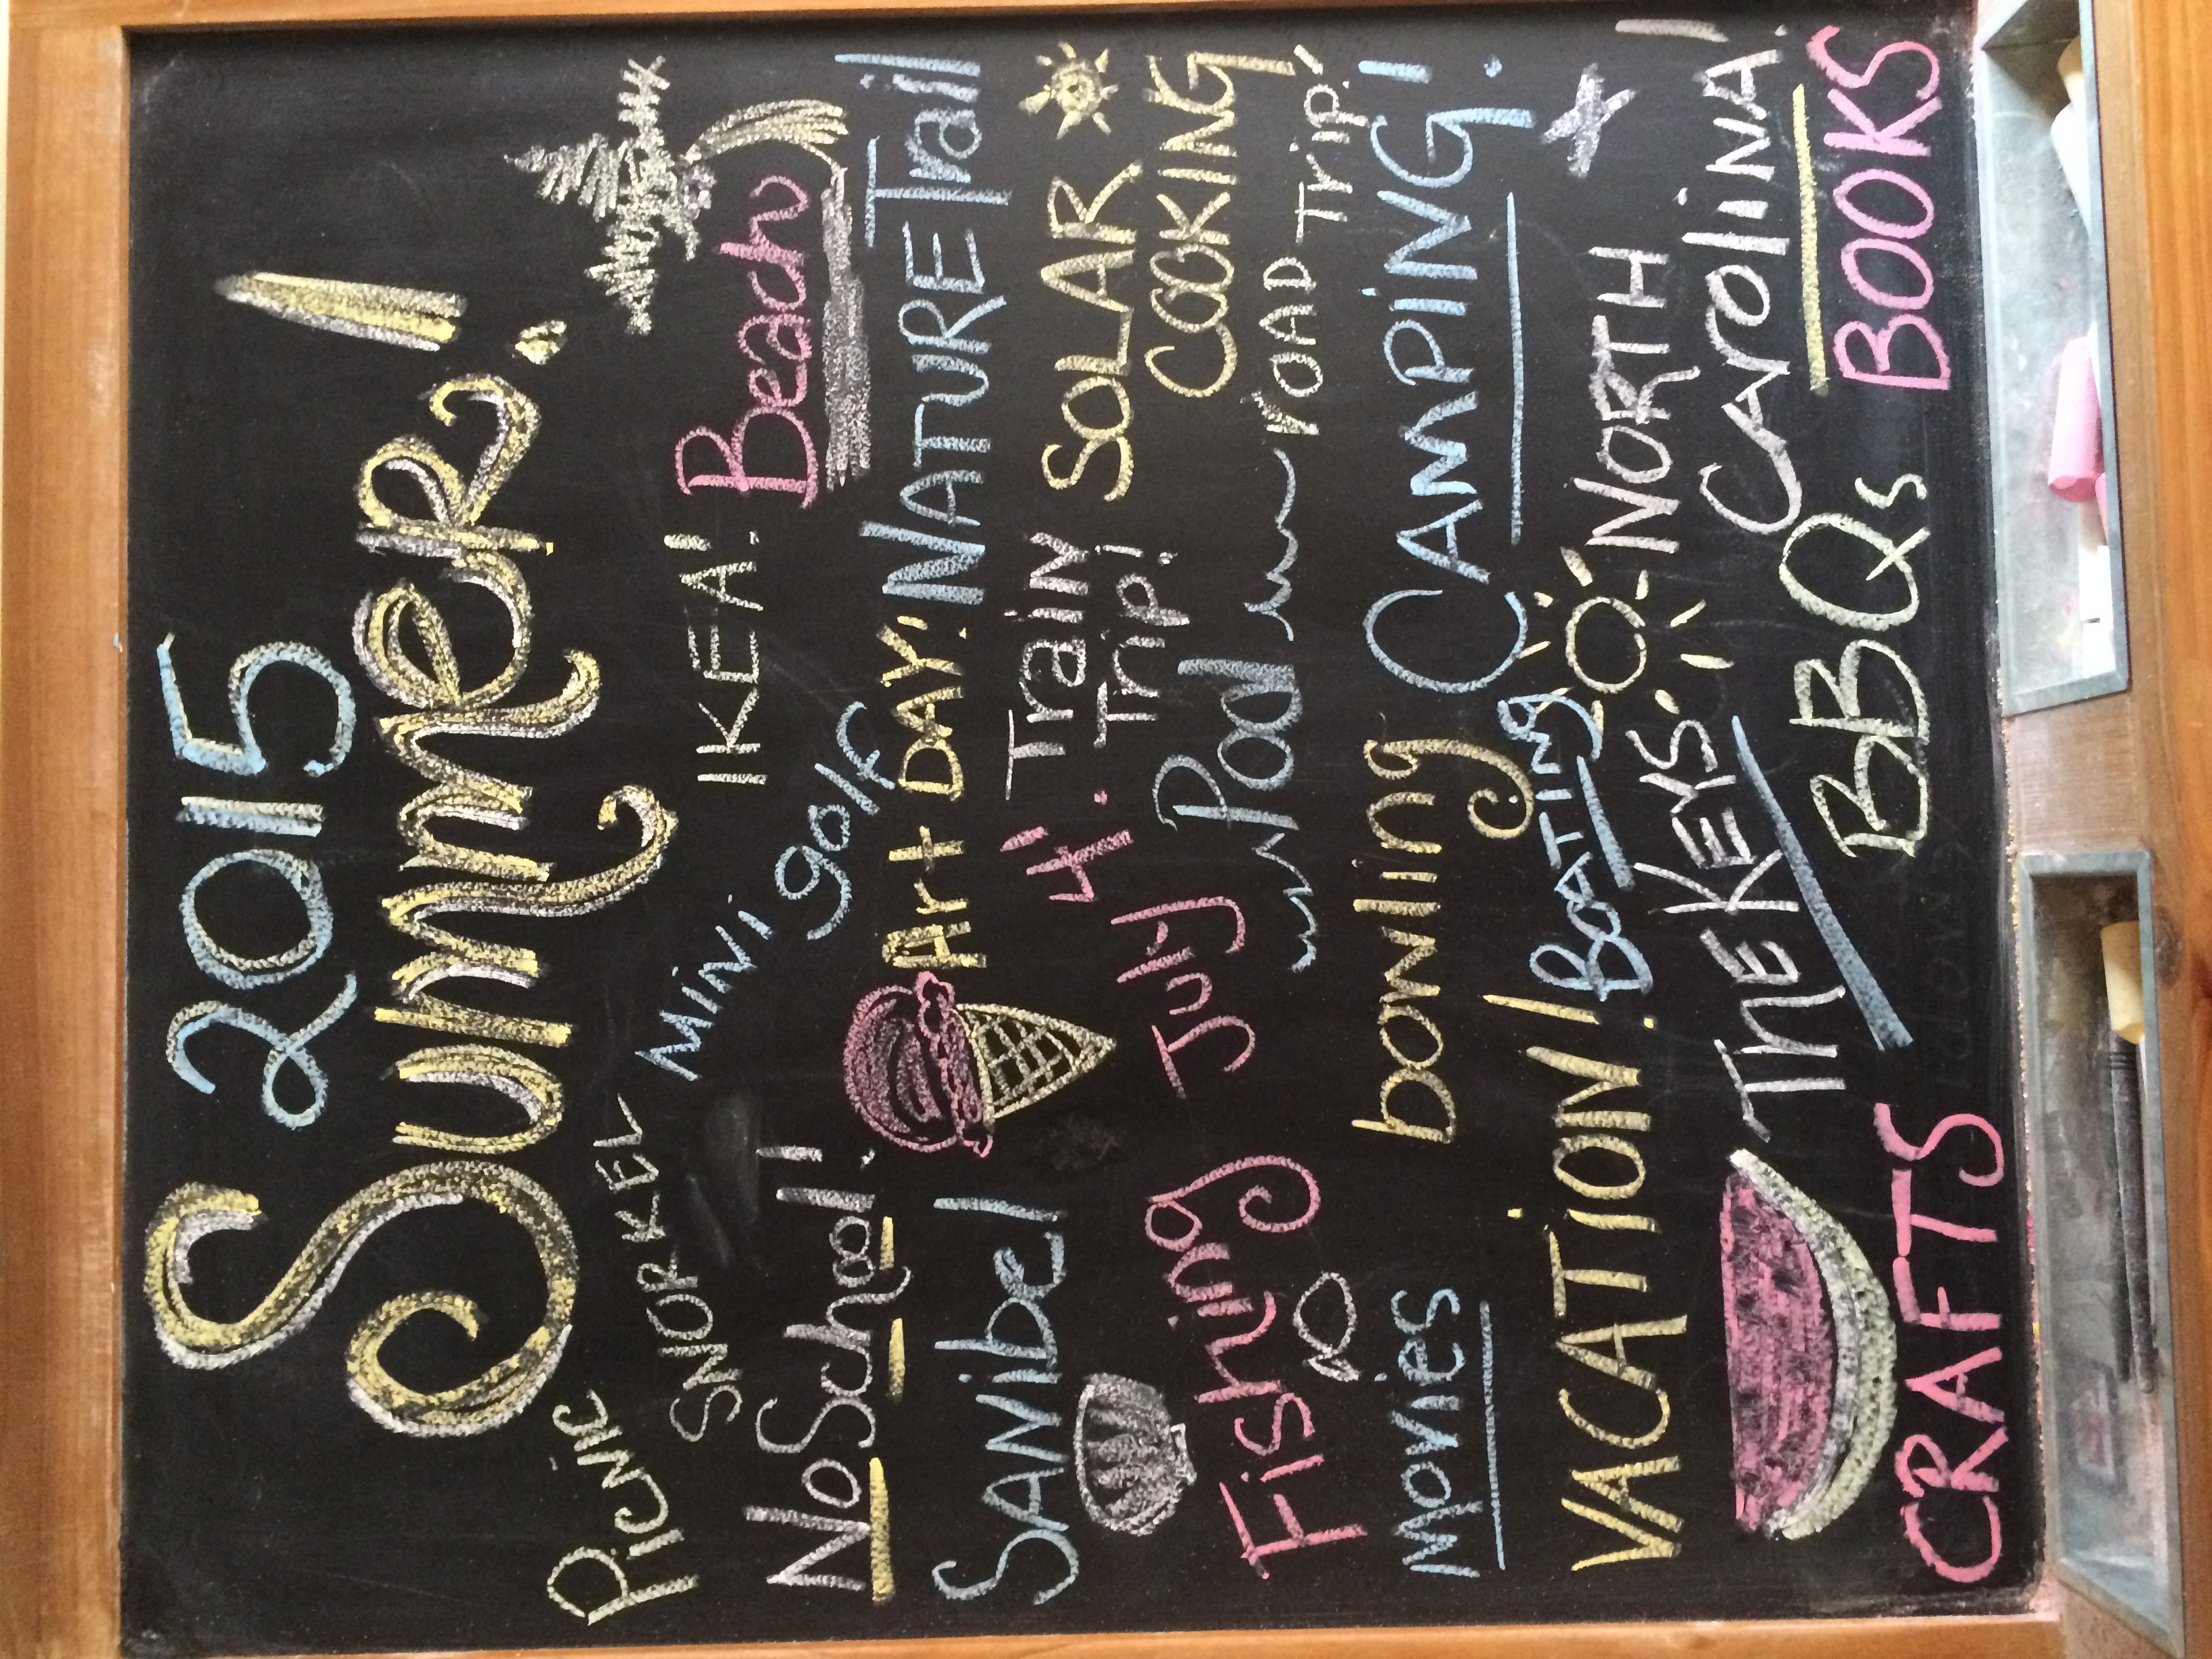 2015
Summer!
Picnic
SNORKEL
Mini golf
IKEA!
Beach
No School!
Art DAY!
NATURE Trail
Sanibel
July 4.
Train
Trip!
SOLAR
COOKING
Fishing
Pool
rOAD Trip!
Movies
bowling
CAMPING!
VACATION!
BOATING
The KEYS
NORTH
CAROlINA!
CRAFTS
BBQs
BOOKS